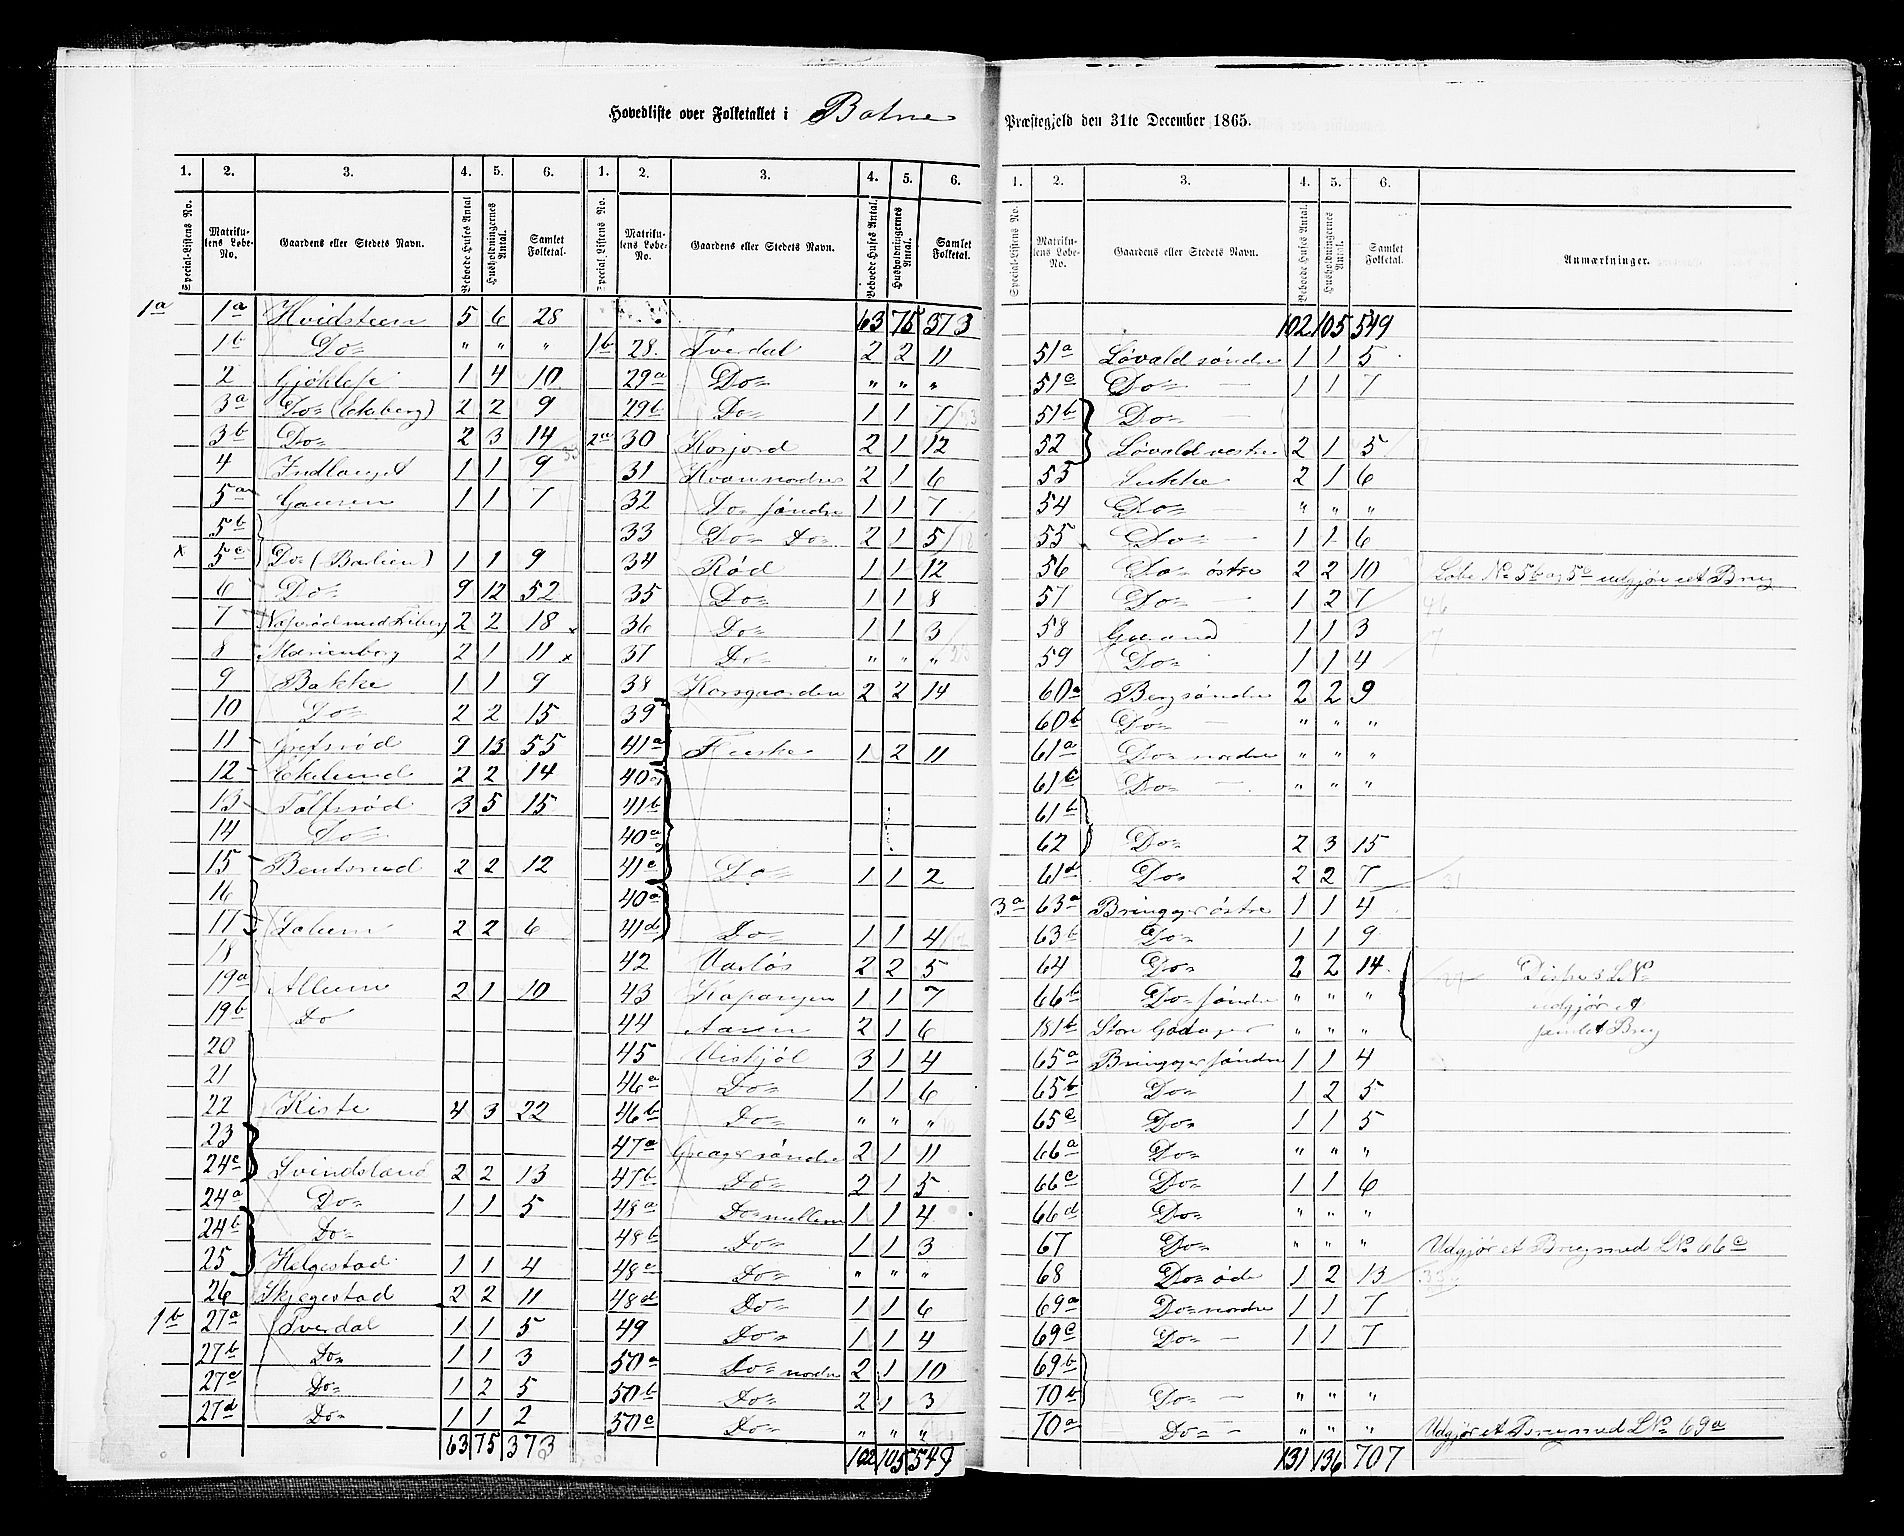 Hovedliste over Folketallet i Botne Præstegjeld den 31te December 1865.
1. 2. 3. 4. 5. 6. 1. 2. 3. 4. 5. 6.
Special-Listens No. Matrikulens Løbe-No. Gaardens eller Stedets Navn. Beboede Huses Antal. Husholdningernes Antal. Samlet Folketal. Special-Listens No. Matrikulens Løbe-No. Gaardens eller Stedets Navn. Beboede Huses Antal. Husholdningernes Antal. Samlet Folketal.
1a 1a Hvidsteen 5 6 28
1b Do= " " "
2 Gjøklep 1 4 10
3a Do= (Ekeberg) 2 2 9
3b Do= 2 3 14
4 Indlauget 1 1 9
5a Gausen 1 1 7
5b
x 5c Do= (Barlien) 1 1 9
6 Do= 9 12 52
7 med 2 2 18
8 Marienborg 2 1 11
9 Bakke 1 1 9
10 Do= 2 2 15
11 Grefsrød 9 13 55
12 Ekelund 2 2 14
13 Tolfsrød 3 5 15
14 Do=
15 Bentsrud 2 2 12
16
17 Solum 2 2 6
18
19a Allum 2 1 10
19b Do
20
21
22 Kiste 4 3 22
23
24c Svindsland 2 2 13
24a Do= 1 1 5
24b Do=
25 Helgestad 1 1 4
26 Skjegestad 2 2 11
1b 27a Tverdal 1 1 5
27b Do= 1 1 3
27c Do= 1 2 5
27d Do= 1 1 2
63 75 373
63 75 373
1b 28. Tverdal 2 2 11
29a Do= " " "
29b Do= 1 1 7
2a 30 Korjord 2 1 12
31 2 1 6
32 Do søndre 1 1 7
33 Do= Do= 2 1 5
34 Rød 1 1 12
35 Do= 1 1 8
x 36 Do= 1 1 3
x 37 Do= " " "
38 Korsgaarden 2 2 14
39
41a 1 2 11
40a
41b
40a
41c Do= 1 1 2
40a
41d Do= 1 1 4
42 Varløs 2 2 5
43 Kopangen 1 1 7
44 Aasen 2 1 6
45 Viskjøl 3 1 4
46a Do= 1 1 6
46b Do= " " "
47a Greager søndre 2 1 11
47b Do= 2 1 5
48a Do= mellem 1 1 4
48b Do= 1 1 3
48c Do= " " "
48d Do= 1 1 6
49 Do= 1 1 4
50a Do= nordre 2 1 10
50b Do= 2 1 3
50c Do= " " "
102 105 549
1. 2. 3. 4. 5. 6.
Special-Listens No. Matrikulens Løbe-No. Gaardens eller Stedets Navn. Beboede Huses Antal. Husholdningernes Antal. Samlet Folketal. Anmærkninger.
102 105 549
51a Løvald søndre 1 1 5
51c Do= 1 1 7
51b Do=
52 Løvald vestre 2 1 5
53 Sukke 2 1 6
54 Do= " " "
55 Do= 1 1 6
56 Do= østre 2 2 10 Løbe No 5b og 5c udgjør eet Brug
57 Do= 1 2 7
58 1 1 3
59 Do= 1 1 4
60a Berg søndre 2 2 9
60b Do= " " "
61a Do= nordre " " "
61c Do= " " "
61b
62 Do= 2 3 15
61d Do= 2 2 7
3a 63a Bringager østre 1 1 4
63b Do= 1 1 9
64 Do= 2 2 14 Disse 3 L.No
66b Do= søndre " " " udgjør et
181b Store Gadager " " " samlet Brug
65a Bringager søndre 1 1 4
65b Do= 1 2 5
65c Do= 1 1 5
66a Do= " " "
66c Do= 1 1 6
66d Do= " " "
67 Do= " " " Udgjør et Brug med LNo 66c
68 Do= øde 1 2 13
69a Do= nordre 1 1 7
69c Do= 1 1 7
69b
70b Do= " " "
70a Do= " " " Udgjør et Brug med LNo 69a
131 136 707